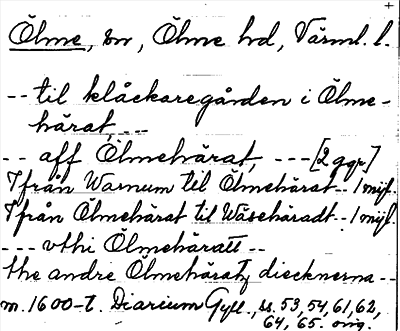 Ölme, sn, Ölme hd, Värml. l.
-- til klåckaregården i Ölme-
härat, ---
-- aff Ölmehärat, --- [2 ggr]
Ifrån Warnum til Ölmehärat -- 1 mijl.
Ifrån Ölmehärat til Wäsehäradt -- 1 mijl.
--- vthi Ölmehäratt --
the andre Ölmehäratz diecknerna --
m. 1600-t. Diarium Gyll., ss. 53, 54, 61, 62,
64, 65. orig.